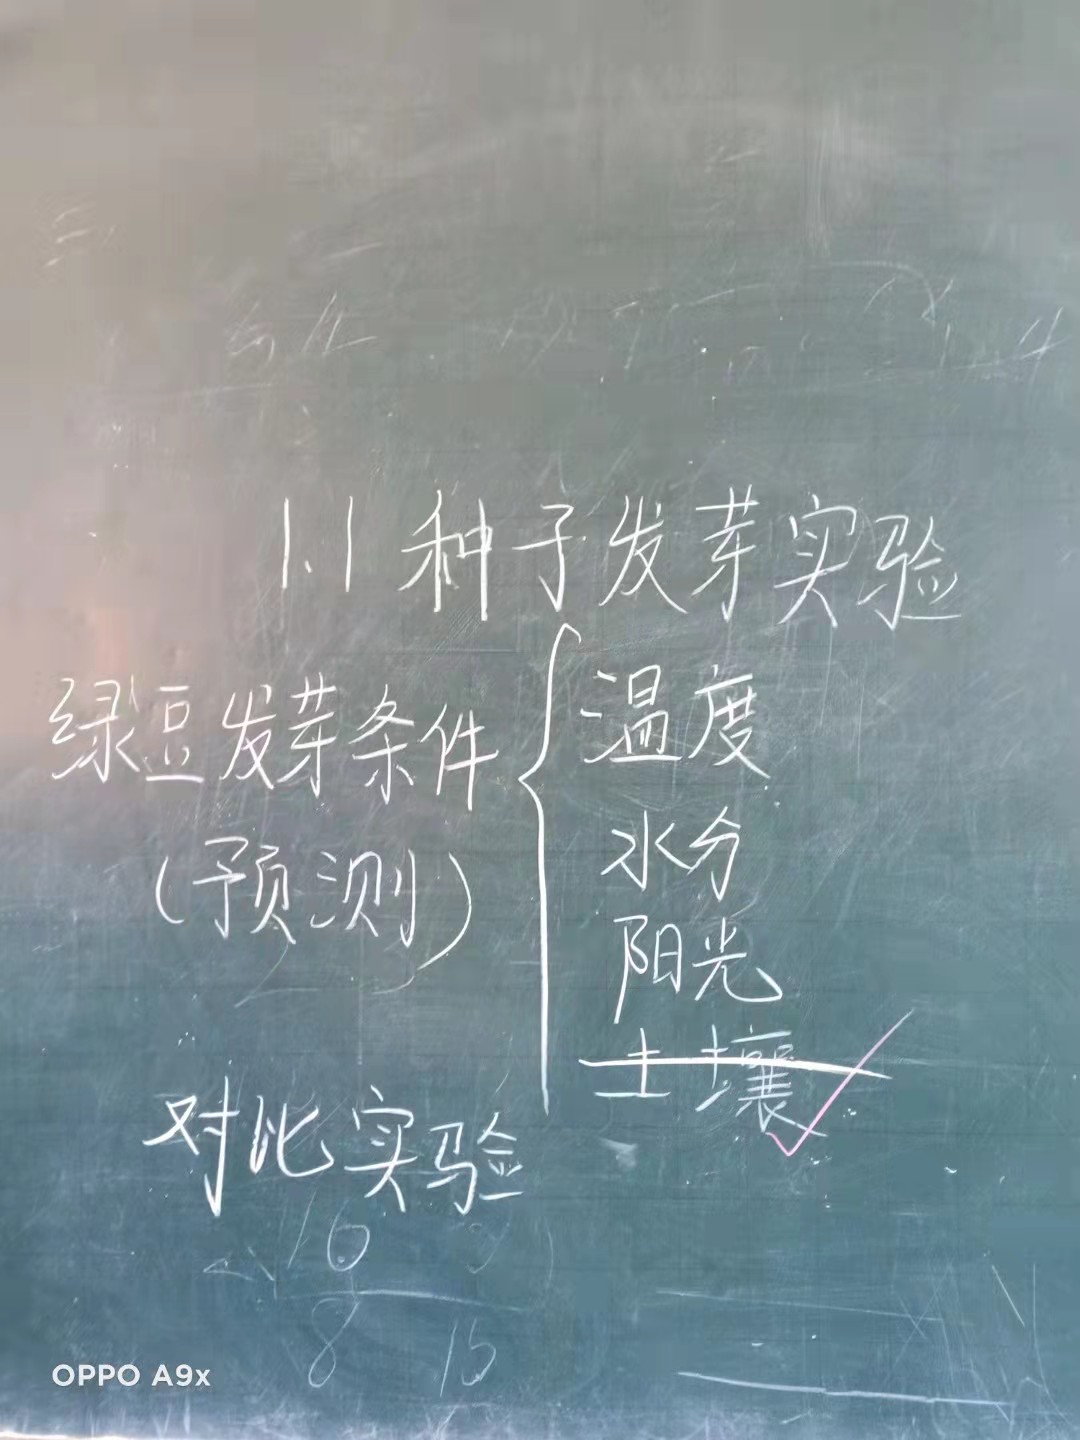 1.1 种子发芽实验
绿豆发芽条件
(预测)
温度
水分
阳光
土壤
对比实验
16
8 15
OPPO A9x